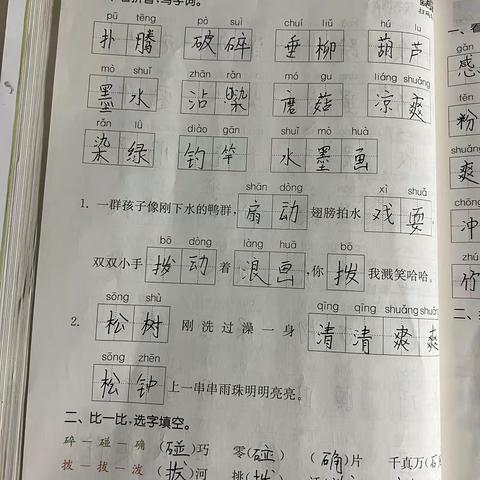 pū tēng pò suì chuí liǔ hú lu
扑腾 破碎 垂柳 葫芦
mò shuǐ zhān rǎn mó gu liáng shuǎng
墨水 沾染 磨菇 凉爽
rǎn lǜ diào gān shuǐ mò huà
染绿 钓竿 水墨画
shān dòng xì shuǎ
1. 一群孩子像刚下水的鸭群,扇动翅膀拍水戏耍
bō dòng làng huā bō
双双小手拨动着浪画,你拨我溅笑哈哈。
sōng shù qīng qīng shuǎng shuǎng
2. 松树刚洗过澡一身清清爽爽
sōng zhēn
松钟上一串串雨珠明明亮亮。
二、比一比,选字填空。
碎—碰—确 (碰)巧 零(碰) (确)片 千真万(
拨—拔—波 (拔)河 挑(拨)
一、看
gǎn
感
fěn
粉
shuǎng
爽
chōng
冲
zhú
竹
二、